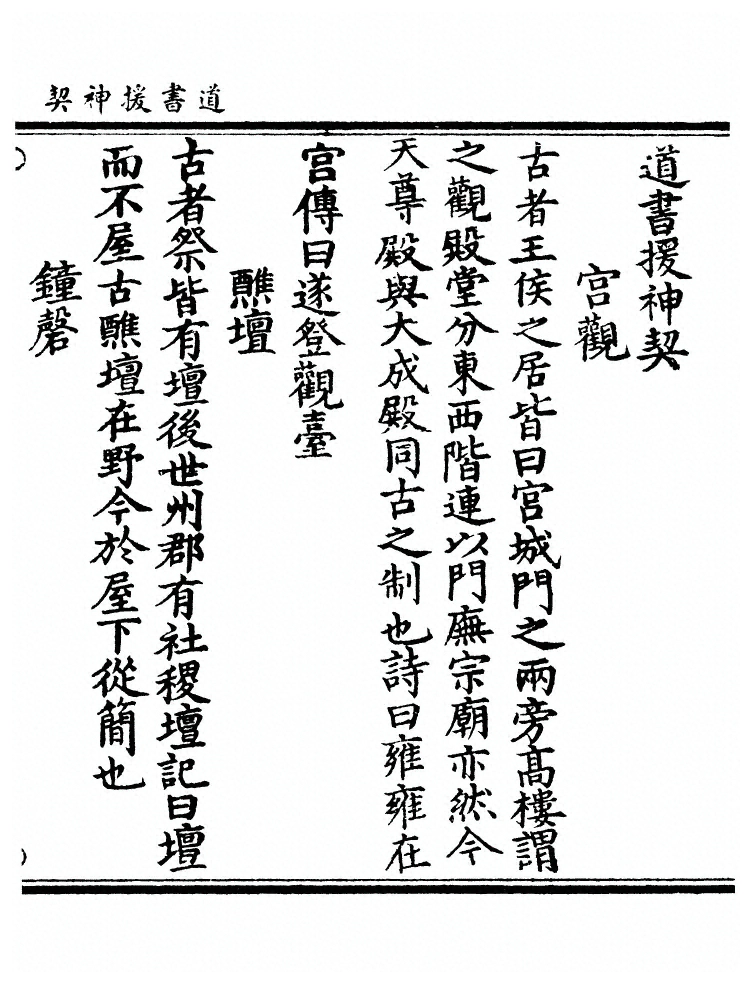 道書援神契
道書援神契
宫觀
古者王侯之居皆曰宫城門之兩旁高樓謂
之觀殿堂分東西階連以門廡宗廟亦然今
天尊殿與大成殿同古之制也詩曰雍雍在
宫傳曰遂登觀臺
醮壇
古者祭皆有壇後世州郡有社稷壇記曰壇
而不屋古醮壇在野今於屋下從簡也
鐘磬